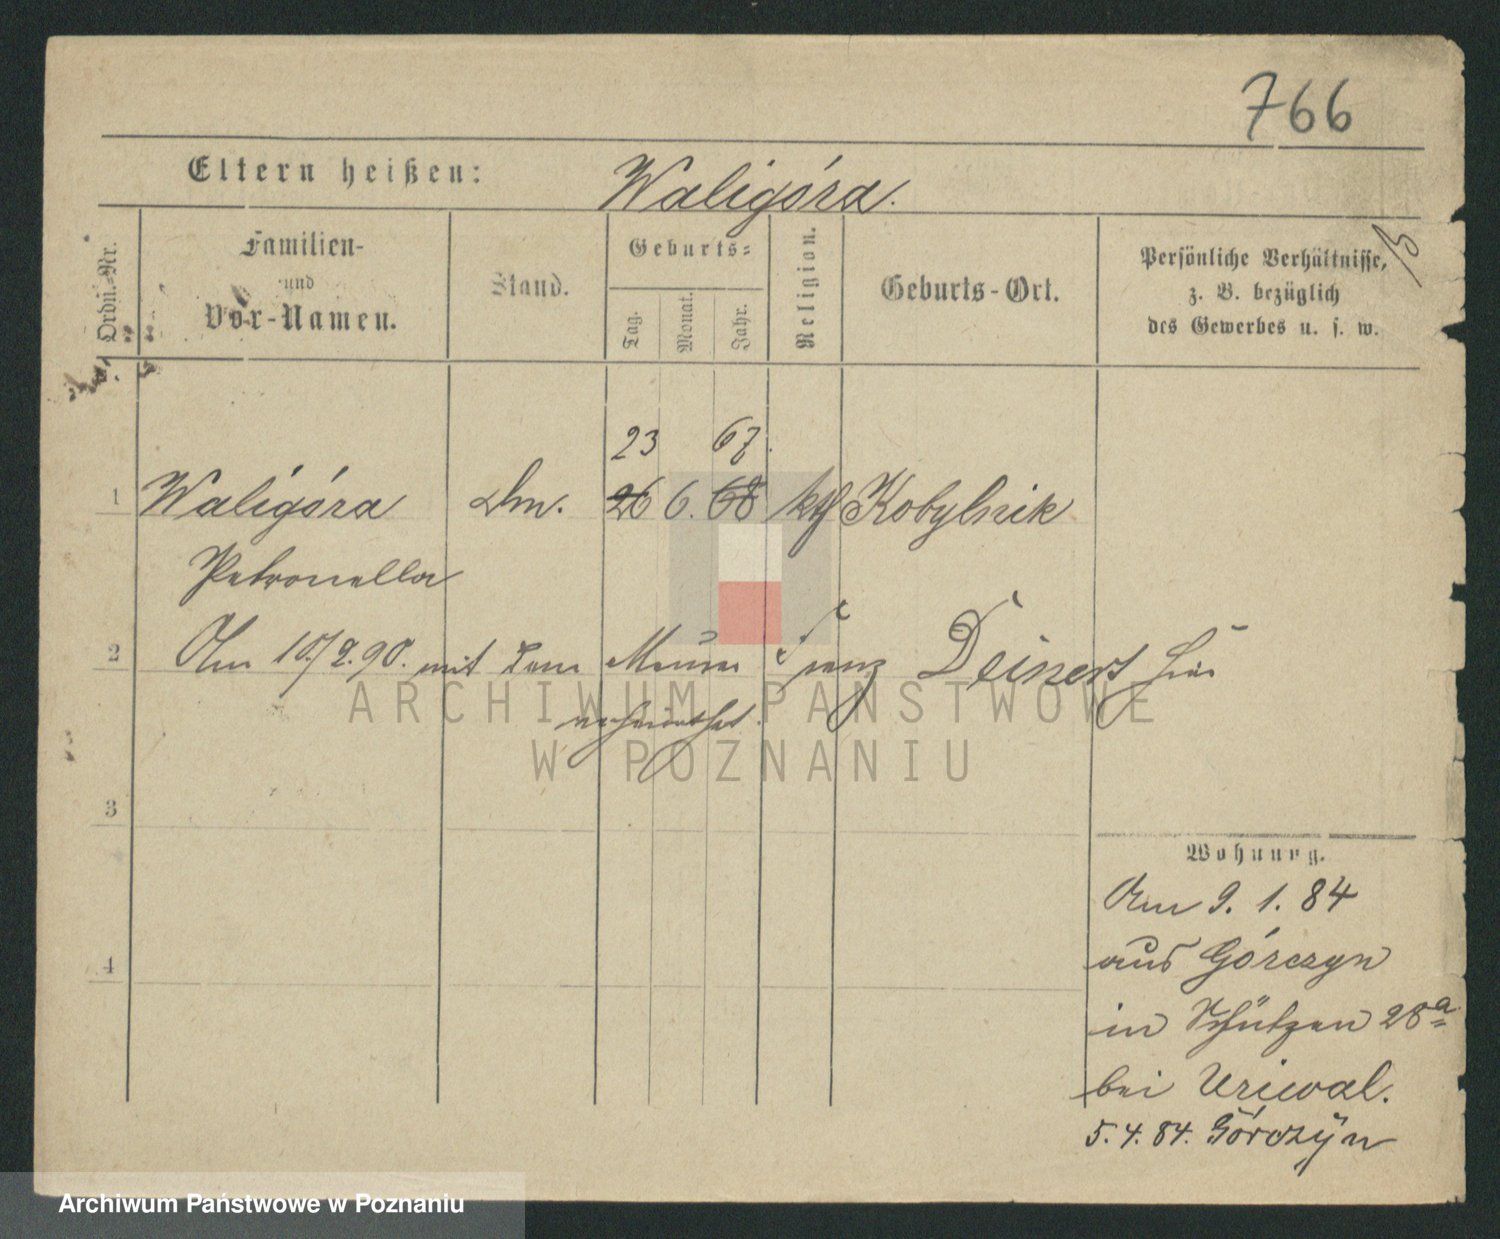 766
Eltern heißen: Waligóra.
Ordn.-Nr.
Familien-
und
Vor-Namen.
Stand.
Geburts-
Tag.
Monat.
Jahr.
Religion.
Geburts-Ort.
Persönliche Verhältnisse,
z. B. bezüglich
des Gewerbes u. s. w.
23 67.
1 Waligóra Dm. 26 6. 68 kth Kobylnik
Petronella
2 Am 10./2. 90. mit dem Maurer Franz Deinert hier
verheirathet.
3
4
Wohnung.
Am 9. 1. 84
aus Górczyn
in Schützen 28a
bei Uriwal.
5. 4. 84. Górczyn
ARCHIWUM PAŃSTWOWE
W POZNANIU
Archiwum Państwowe w Poznaniu